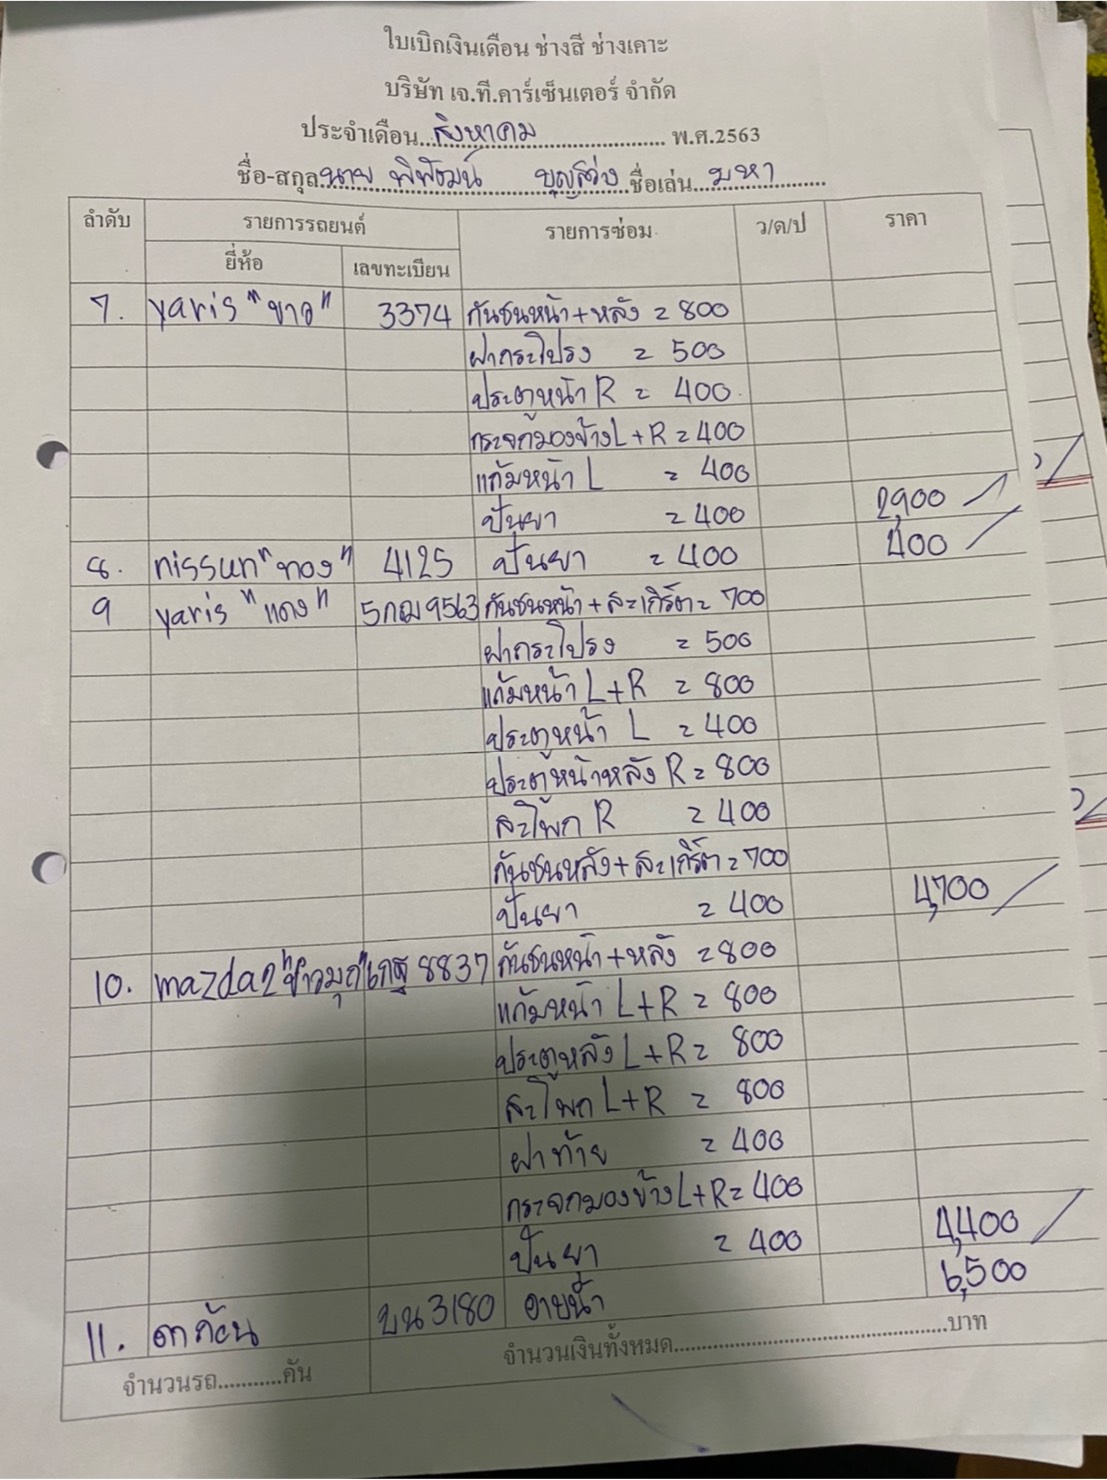 ใบเบิกเงินเดือน ช่างสี ช่างเคาะ
บริษัท เจ.ที.คาร์เซ็นเตอร์ จำกัด
ประจำเดือน...สิงหาคม.................... พ.ศ.2563
ชื่อ-สกุล.นาย พิพัฒน์ บุญสว่าง ชื่อเล่น..มหา........
ลำดับ รายการรถยนต์ รายการซ่อม ว/ด/ป ราคา
ยี่ห้อ เลขทะเบียน
7. yaris "ขาว" 3374 กันชนหน้า+หลัง = 800
ฝากระโปรง = 500
ประตูหน้า R = 400
กระจกมองข้าง L+R = 400
แก้มหน้า L = 400
ปั่นยา = 400 2,900
8. nissun "ทอง" 4125 ปั่นยา = 400 400
9 yaris "แดง" 5กฌ9563 กันชนหน้า + สะเกิร์ต = 700
ฝากระโปรง = 500
แก้มหน้า L+R = 800
ประตูหน้า L = 400
ประตูหน้าหลัง R = 800
สะโพก R = 400
กันชนหลัง + สะเกิร์ต = 700
ปั่นยา = 400 4,700
10. mazda2 "ขาวมุก" 8837 กันชนหน้า+หลัง = 800
แก้มหน้า L+R = 800
ประตูหลัง L+R = 800
สะโพก L+R = 800
ฝาท้าย = 400
กระจกมองข้าง L+R = 400
ปั่นยา = 400 4,400
11. บน3180 อาบน้ำ 6,500
จำนวนรถ...........คัน จำนวนเงินทั้งหมด.............................................บาท